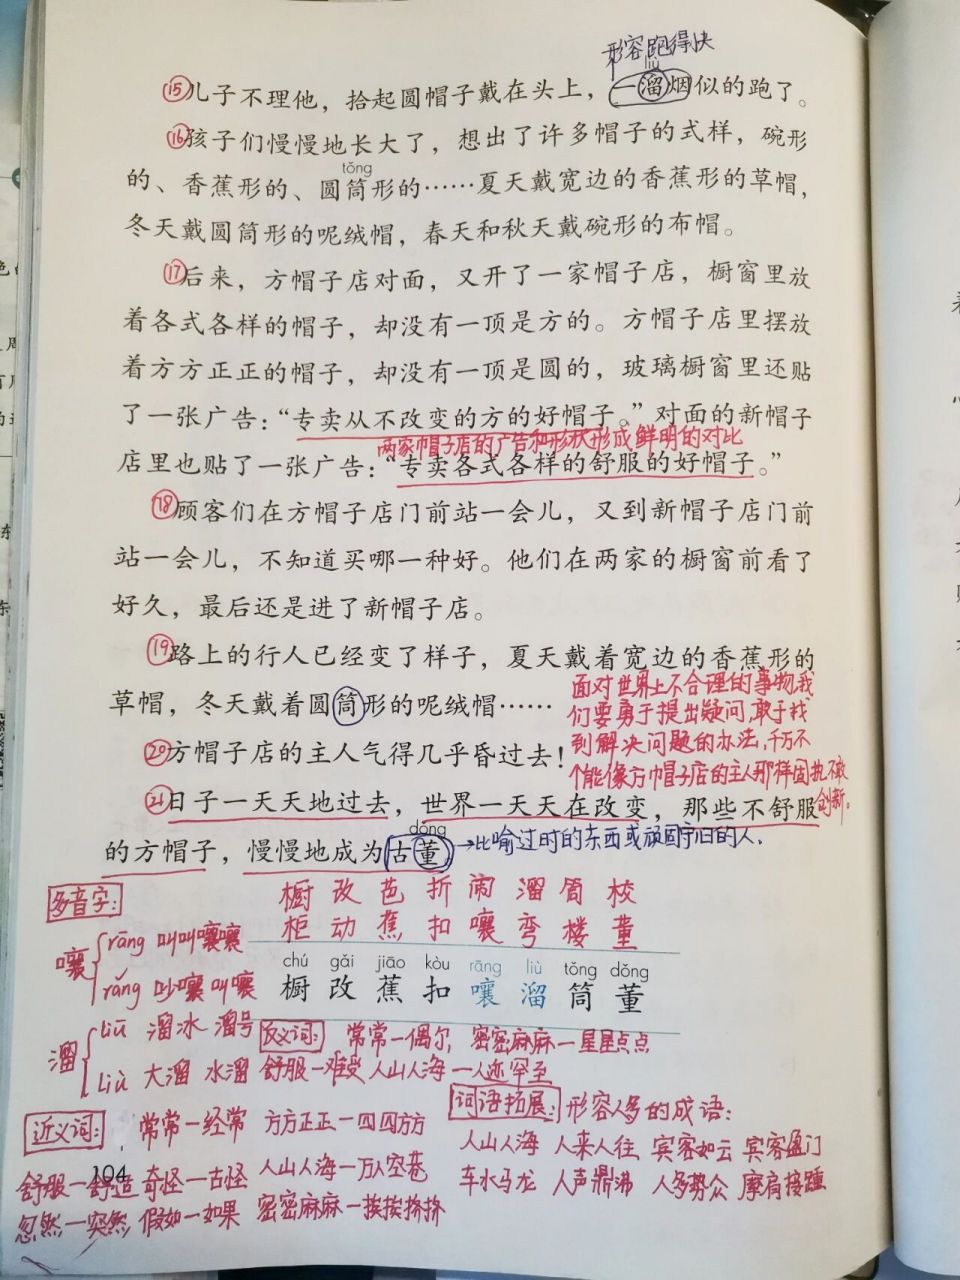 形容跑得快
liū
⑮儿子不理他，拾起圆帽子戴在头上，一溜烟似的跑了。
⑯孩子们慢慢地长大了，想出了许多帽子的式样，碗形
tǒng
的、香蕉形的、圆筒形的……夏天戴宽边的香蕉形的草帽，
冬天戴圆筒形的呢绒帽，春天和秋天戴碗形的布帽。
⑰后来，方帽子店对面，又开了一家帽子店，橱窗里放
着各式各样的帽子，却没有一顶是方的。方帽子店里摆放
着方方正正的帽子，却没有一顶是圆的，玻璃橱窗里还贴
了一张广告：“专卖从不改变的方的好帽子。”对面的新帽子
两家帽子店的广告和形状形成鲜明的对比
店里也贴了一张广告：“专卖各式各样的舒服的好帽子。”
⑱顾客们在方帽子店门前站一会儿，又到新帽子店门前
站一会儿，不知道买哪一种好。他们在两家的橱窗前看了
好久，最后还是进了新帽子店。
⑲路上的行人已经变了样子，夏天戴着宽边的香蕉形的
草帽，冬天戴着圆筒形的呢绒帽……
面对世界上不合理的事物,我
们要勇于提出疑问,敢于找
到解决问题的办法,千万不
能像方帽子店的主人那样固执,不敢
创新。
⑳方帽子店的主人气得几乎昏过去！
㉑日子一天天地过去，世界一天天在改变，那些不舒服
dǒng
的方帽子，慢慢地成为古董
→比喻过时的东西或顽固守旧的人.
多音字:
橱 改 芭 折 闹 溜 筒 校
柜 动 蕉 扣 嚷 弯 楼 董
嚷
rāng 叫叫嚷嚷
rǎng 吵嚷 叫嚷
chú gǎi jiāo kòu rāng liù tǒng dǒng
橱 改 蕉 扣 嚷 溜 筒 董
溜
liū 溜冰 溜号
liù 大溜 水溜
反义词: 常常—偶尔 密密麻麻—星星点点
舒服—难受 人山人海—人迹罕至
近义词: 常常—经常 方方正正—四四方方
舒服—舒适 奇怪—古怪 人山人海—万人空巷
忽然—突然 假如—如果 密密麻麻—挨挨挤挤
词语拓展: 形容人多的成语:
人山人海 人来人往 宾客如云 宾客盈门
车水马龙 人声鼎沸 人多势众 摩肩接踵
104